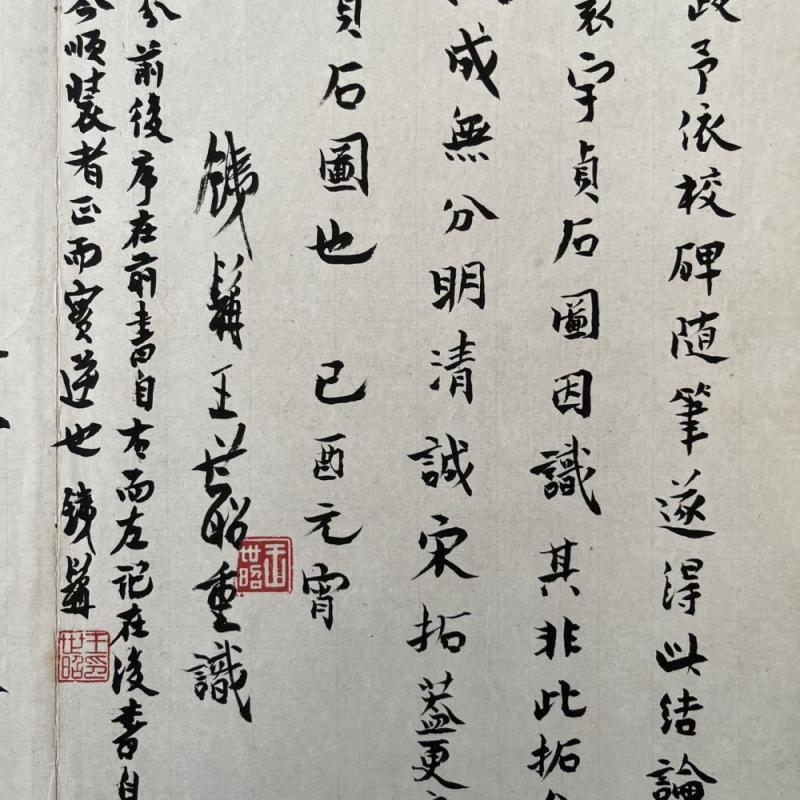 予依校碑随筆遂得此結論
宇貞石圖因識其非此拓
成無分明清誠宋拓蓋更
貞石圖也 己酉元宵
鐵髯王世昭重識
王世昭
前後序在前書自右而左記在後書自
順裝者正而實逆也 鐵髯
王世昭印